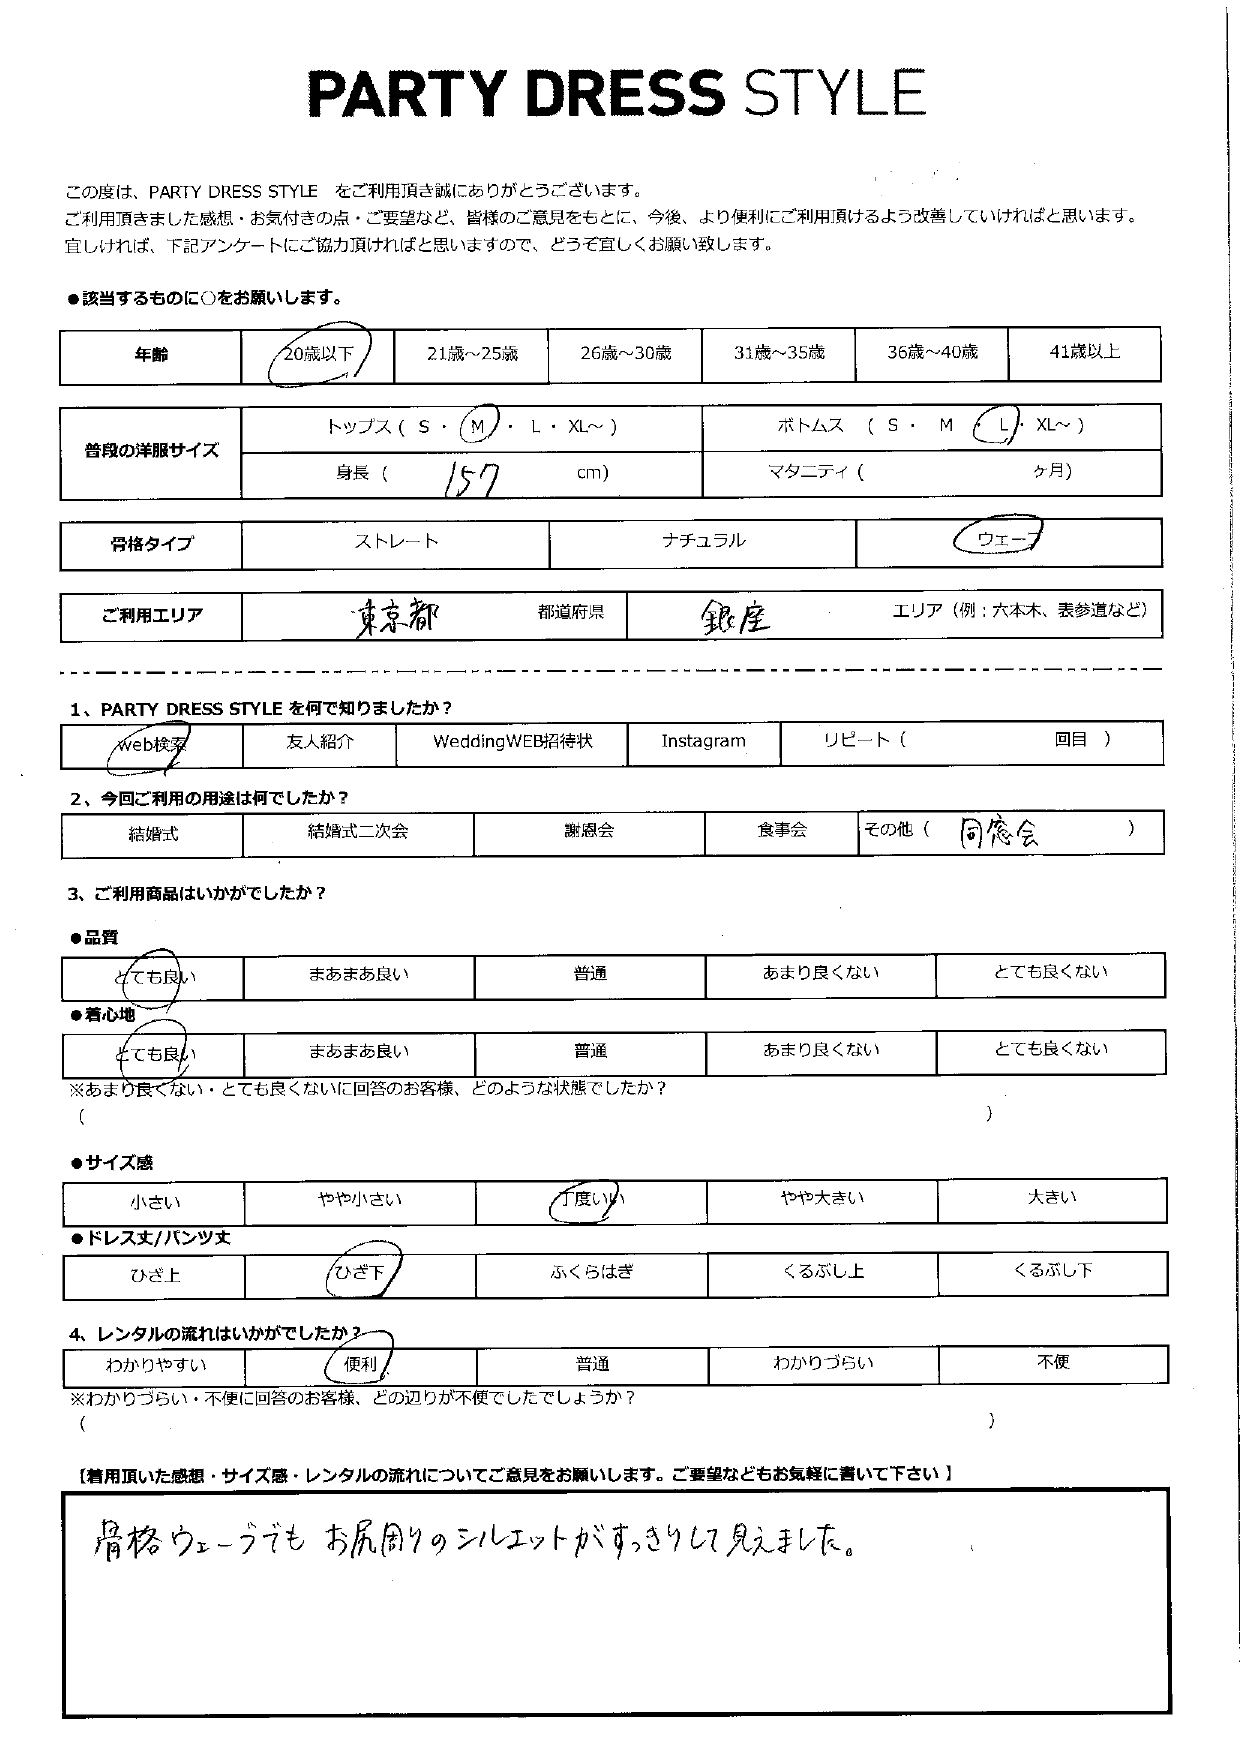 PARTY DRESS STYLE
この度は、PARTY DRESS STYLE をご利用頂き誠にありがとうございます。
ご利用頂きました感想・お気付きの点・ご要望など、皆様のご意見をもとに、今後、より便利にご利用頂けるよう改善していければと思います。
宜しければ、下記アンケートにご協力頂ければと思いますので、どうぞ宜しくお願い致します。
●該当するものに○をお願いします。
年齢 20歳以下 21歳～25歳 26歳～30歳 31歳～35歳 36歳～40歳 41歳以上
普段の洋服サイズ トップス ( S ・ M ・ L ・ XL～ ) ボトムス ( S ・ M ・ L ・ XL～ )
身長 ( 157 cm) マタニティ ( ヶ月)
骨格タイプ ストレート ナチュラル ウェーブ
ご利用エリア 東京都 都道府県 銀座 エリア（例：六本木、表参道など）
1、PARTY DRESS STYLE を何で知りましたか？
Web検索 友人紹介 WeddingWEB招待状 Instagram リピート ( 回目 )
2、今回ご利用の用途は何でしたか？
結婚式 結婚式二次会 謝恩会 食事会 その他 ( 同窓会 )
3、ご利用商品はいかがでしたか？
●品質
とても良い まあまあ良い 普通 あまり良くない とても良くない
●着心地
とても良い まあまあ良い 普通 あまり良くない とても良くない
※あまり良くない・とても良くないに回答のお客様、どのような状態でしたか？
( )
●サイズ感
小さい やや小さい 丁度いい やや大きい 大きい
●ドレス丈/パンツ丈
ひざ上 ひざ下 ふくらはぎ くるぶし上 くるぶし下
4、レンタルの流れはいかがでしたか？
わかりやすい 便利 普通 わかりづらい 不便
※わかりづらい・不便に回答のお客様、どの辺りが不便でしたでしょうか？
( )
【着用頂いた感想・サイズ感・レンタルの流れについてご意見をお願いします。ご要望などもお気軽に書いて下さい 】
骨格ウェーブでも お尻周りのシルエットがすっきりして見えました。